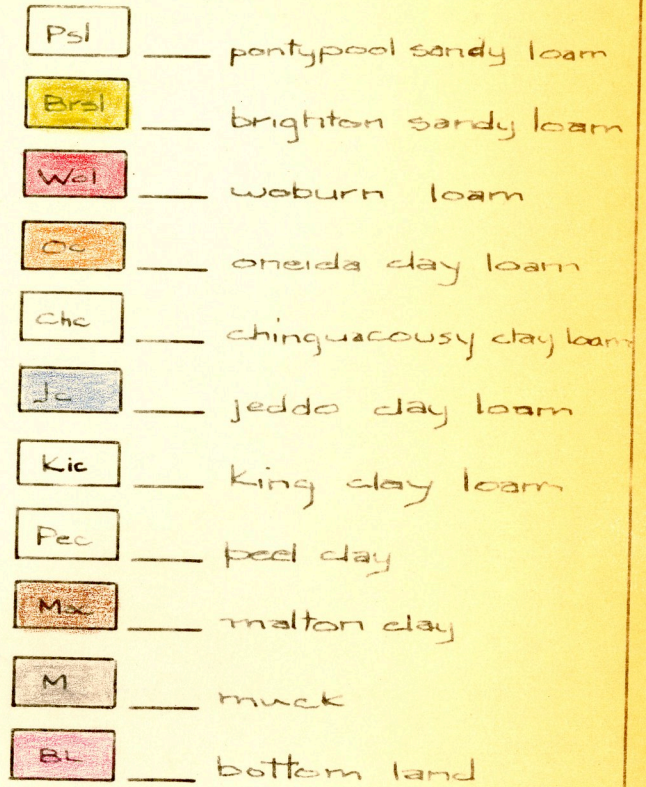 Psl ___ pontypool sandy loam
Brsl ___ brighton sandy loam
Wol ___ woburn loam
Oc ___ oneida clay loam
Chc ___ chinguacousy clay loam
Jc ___ jeddo clay loam
Kic ___ king clay loam
Pec ___ peel clay
Ma ___ malton clay
M ___ muck
BL ___ bottom land